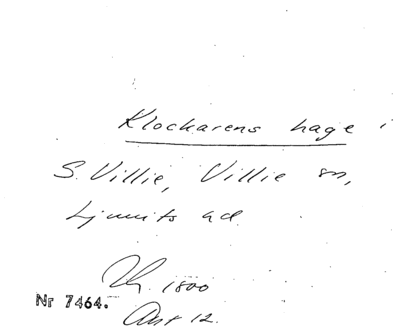 Klockarens hage i
S. Villie, Villie sn,
Ljunits hd
1800
Nr 7464.
12.